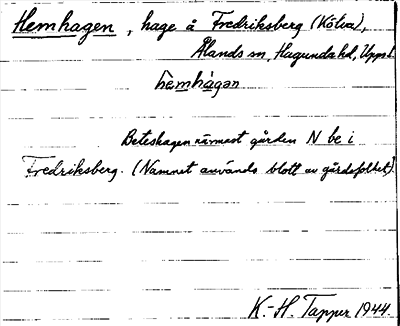 Hemhagen, hage å Fredriksberg (Kötva),
Ålands sn, Hagunda hd, Uppsl.
hèmhágan
Beteshagen närmast gården N be i
Fredriksberg. (Namnet används blott av gårdsfolket).
K.-H. Tapper 1944.